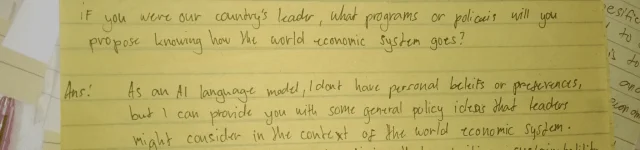 if you were our country's leader, what programs or policies will you
propose knowing how the world economic system goes?
Ans: As an AI language model, I dont have personal beliefs or preferences,
but I can provide you with some general policy ideas that leaders
might consider in the context of the world economic system.
to